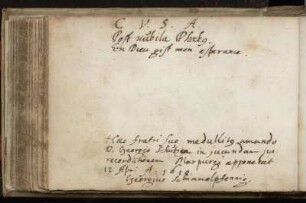 C. V. S. A.
Post nubila Phœbus.
En Dieu gist mon esperance.
Hæc fratri suo medullitus amando
D. Georgio Schultzen in jucundam sui
recordationem apponebat
12 A. 1618.
Georgius Schmmelpfennig.